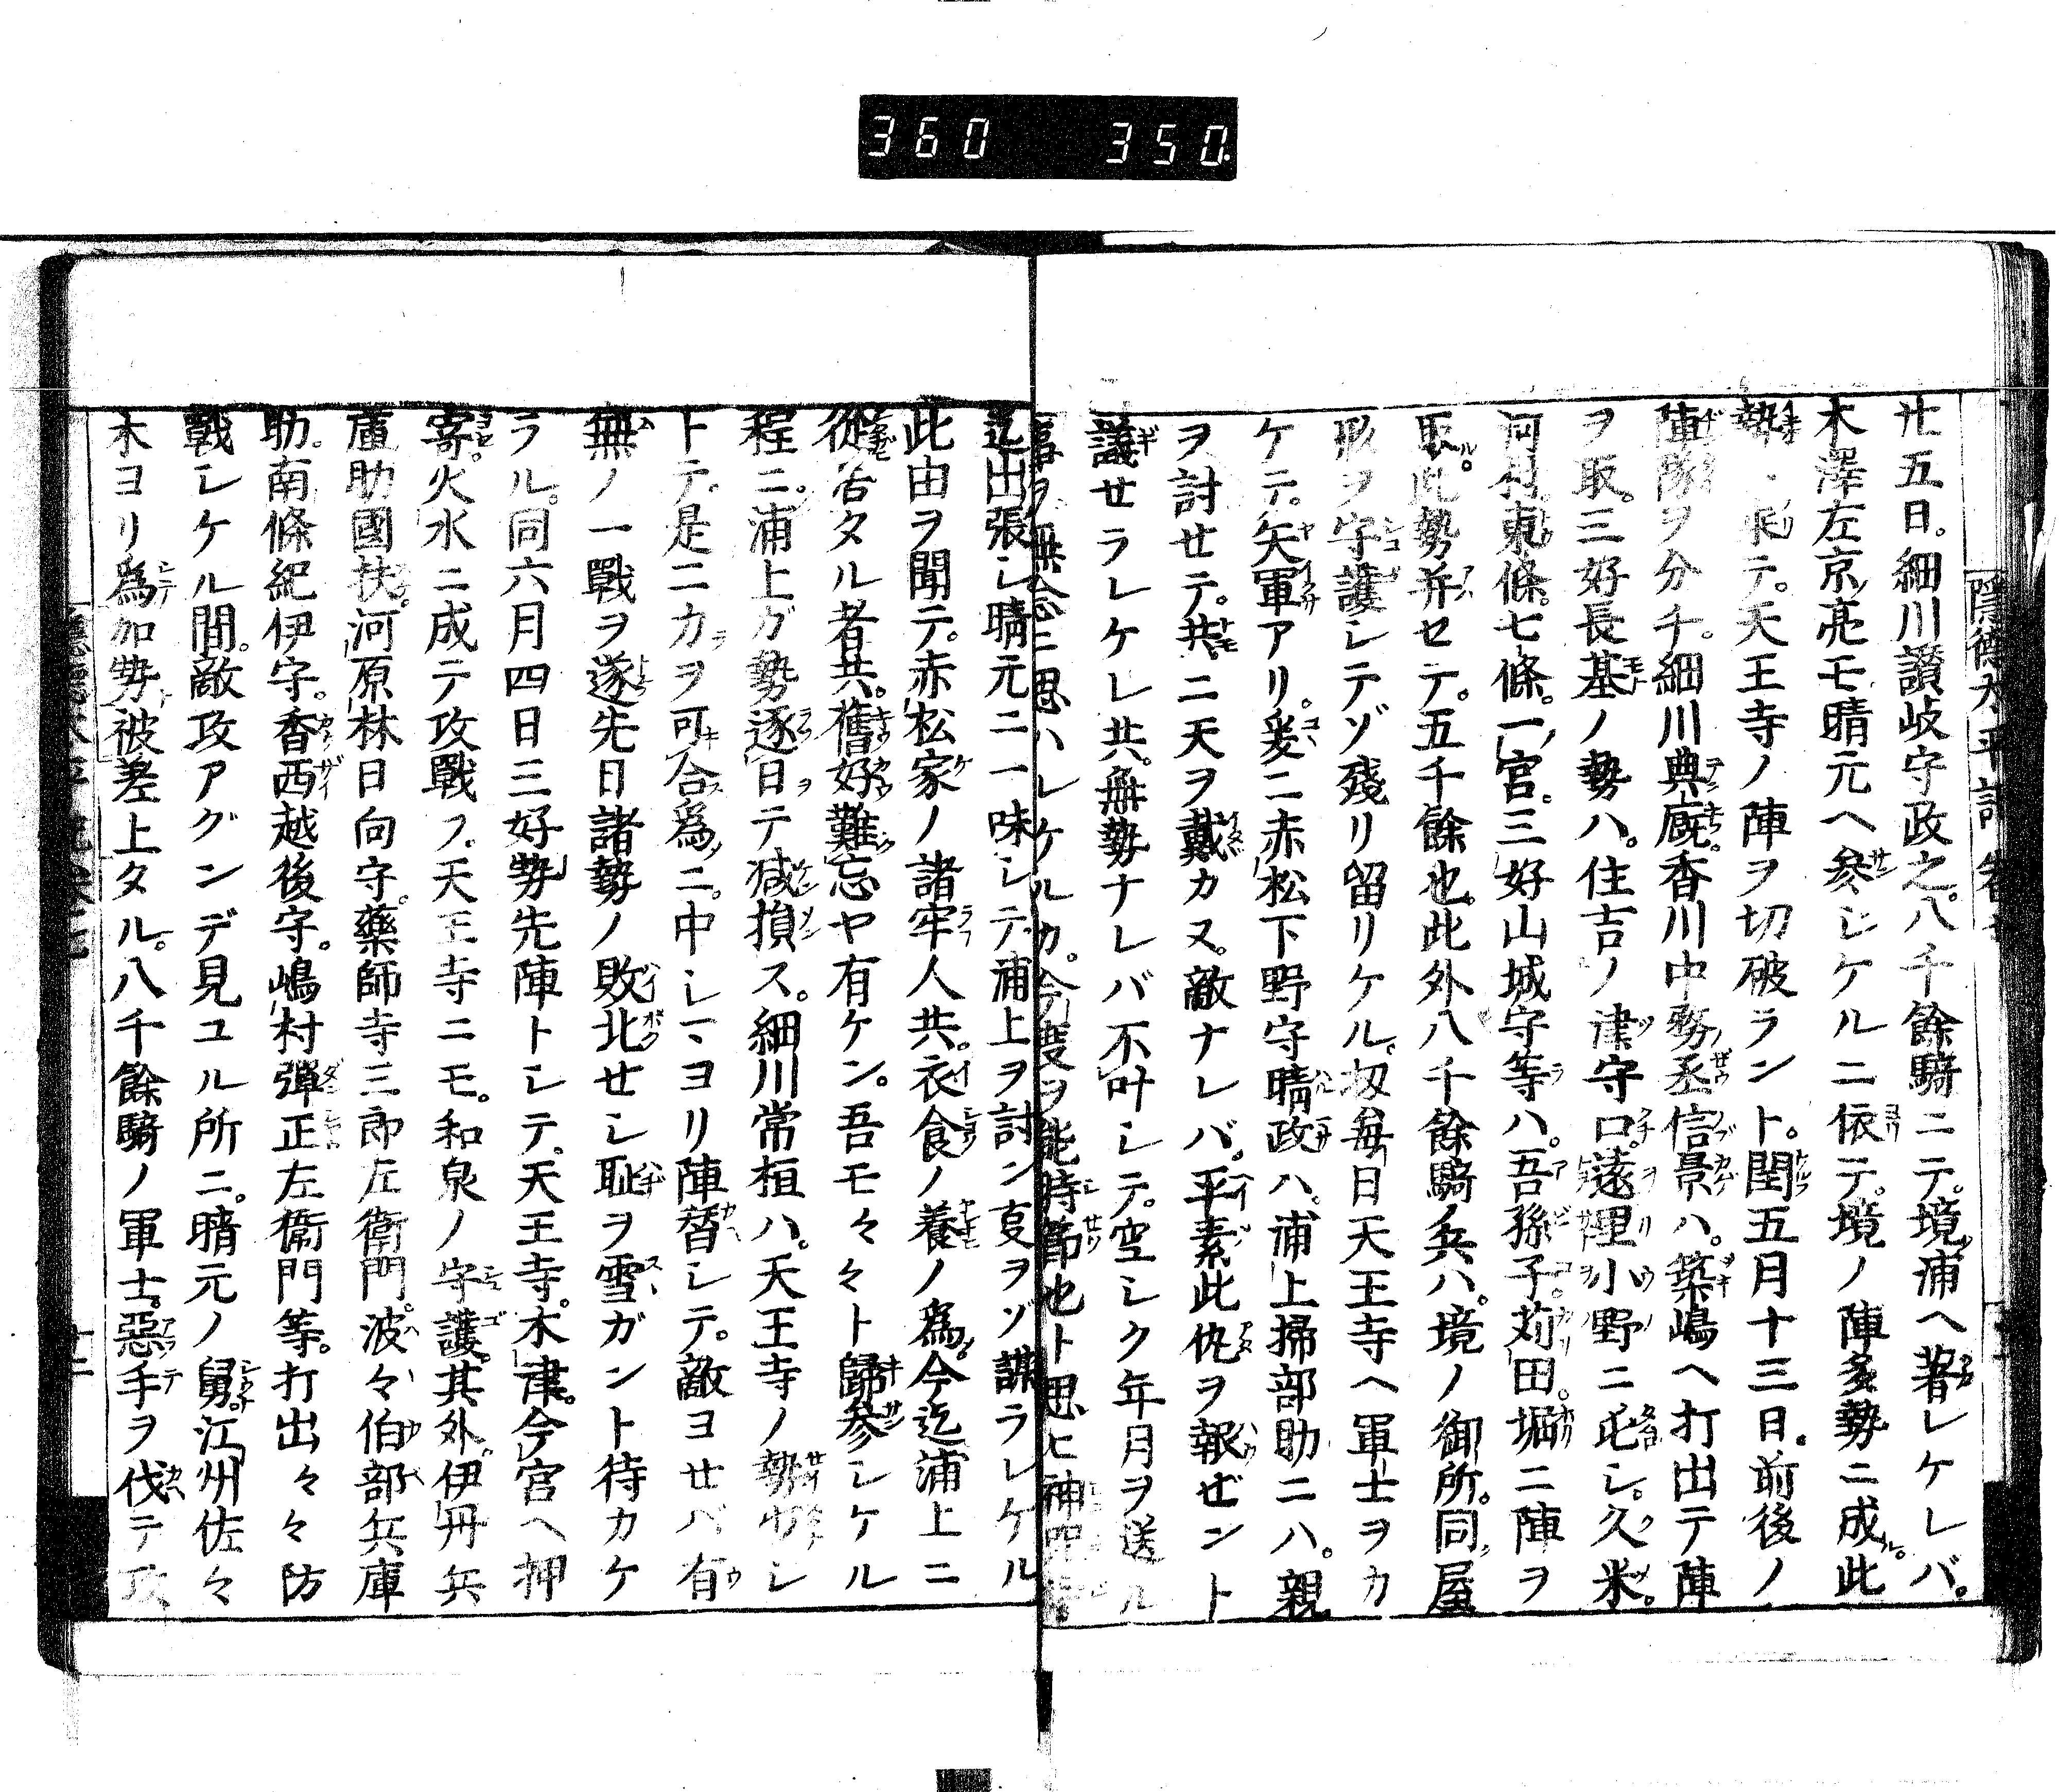 360 350
陰德太平記卷
廿五日。細川讃岐守政之。八千餘騎ニテ。境ノ浦ヘ著レケレバ。
木澤左京ノ亮モ晴元ヘ參シケルニ依テ。境ノ陣多勢ニ成ル。此
勢ニ乘テ。天王寺ノ陣ヲ切破ラント。閏五月十三日。前後ノ
陣隊ヲ分チ。細川典廐。香川中務ノ丞信景ハ。築嶋ヘ打出テ陣
ヲ取。三好長基ノ勢ハ。住吉ノ津守口。遠里小野ニ屯シ。久米。
河村。東條。七條。一ノ宮。三好山城守等ハ。吾孫子。苅田。堀ニ陣ヲ
取ル。此勢并セテ。五千餘也。此外八千餘騎ノ兵ハ。境ノ御所。同ノ屋
形ヲ守護シテゾ殘リ留リケル。扨毎日天王寺ヘ軍士ヲカ
ケテ。矢軍アリ。爰ニ赤松下野守晴政ハ。浦上掃部助ニハ。親
ヲ討せテ。共ニ二天ヲ戴カヌ。敵ナレバ。平素此仇ヲ報ぜント
議せラレケレ共。無勢ナレバ不叶シテ。空シク年月ヲ送ル
事ヲ無念ニ思ハレケルカ。今度ヲ能時節也ト思ヒ神
迄出張シ晴元ニ一味シテ浦上ヲ討ン支ヲゾ謀ラレケル
此由ヲ聞テ。赤松家ノ諸牢人共。衣食ノ養ノ爲。今迄浦上ニ
從居タル者共。舊好難忘ヤ有ケン。吾モ々々ト歸參シケル
程ニ。浦上ガ勢逐日テ減損ス。細川常桓ハ。天王寺ノ勢少シ
トテ。是ニカヲ可合爲ニ。中シマヨリ陣替シテ。敵ヨせバ有
無ノ一戰ヲ遂先日諸勢ノ敗北せシ恥ヲ雪ガント待カケ
ラル。同六月四日三好勢先陣トシテ。天王寺。木津。今宮ヘ押
寄。火水ニ成テ攻戰フ。天王寺ニモ。和泉ノ守護。其外。伊丹兵
庫助國扶。河原林日向守。藥師寺三郎左衛門。波々伯部兵庫
助。南條紀伊守。香西越後守。嶋村彈正左衛門等。打出々々防
戰シケル間。敵攻アグンデ見ユル所ニ。晴元ノ舅。江州佐々
木ヨリ爲加勢被差上タル。八千餘騎ノ軍士。惡手ヲ伐テ攻